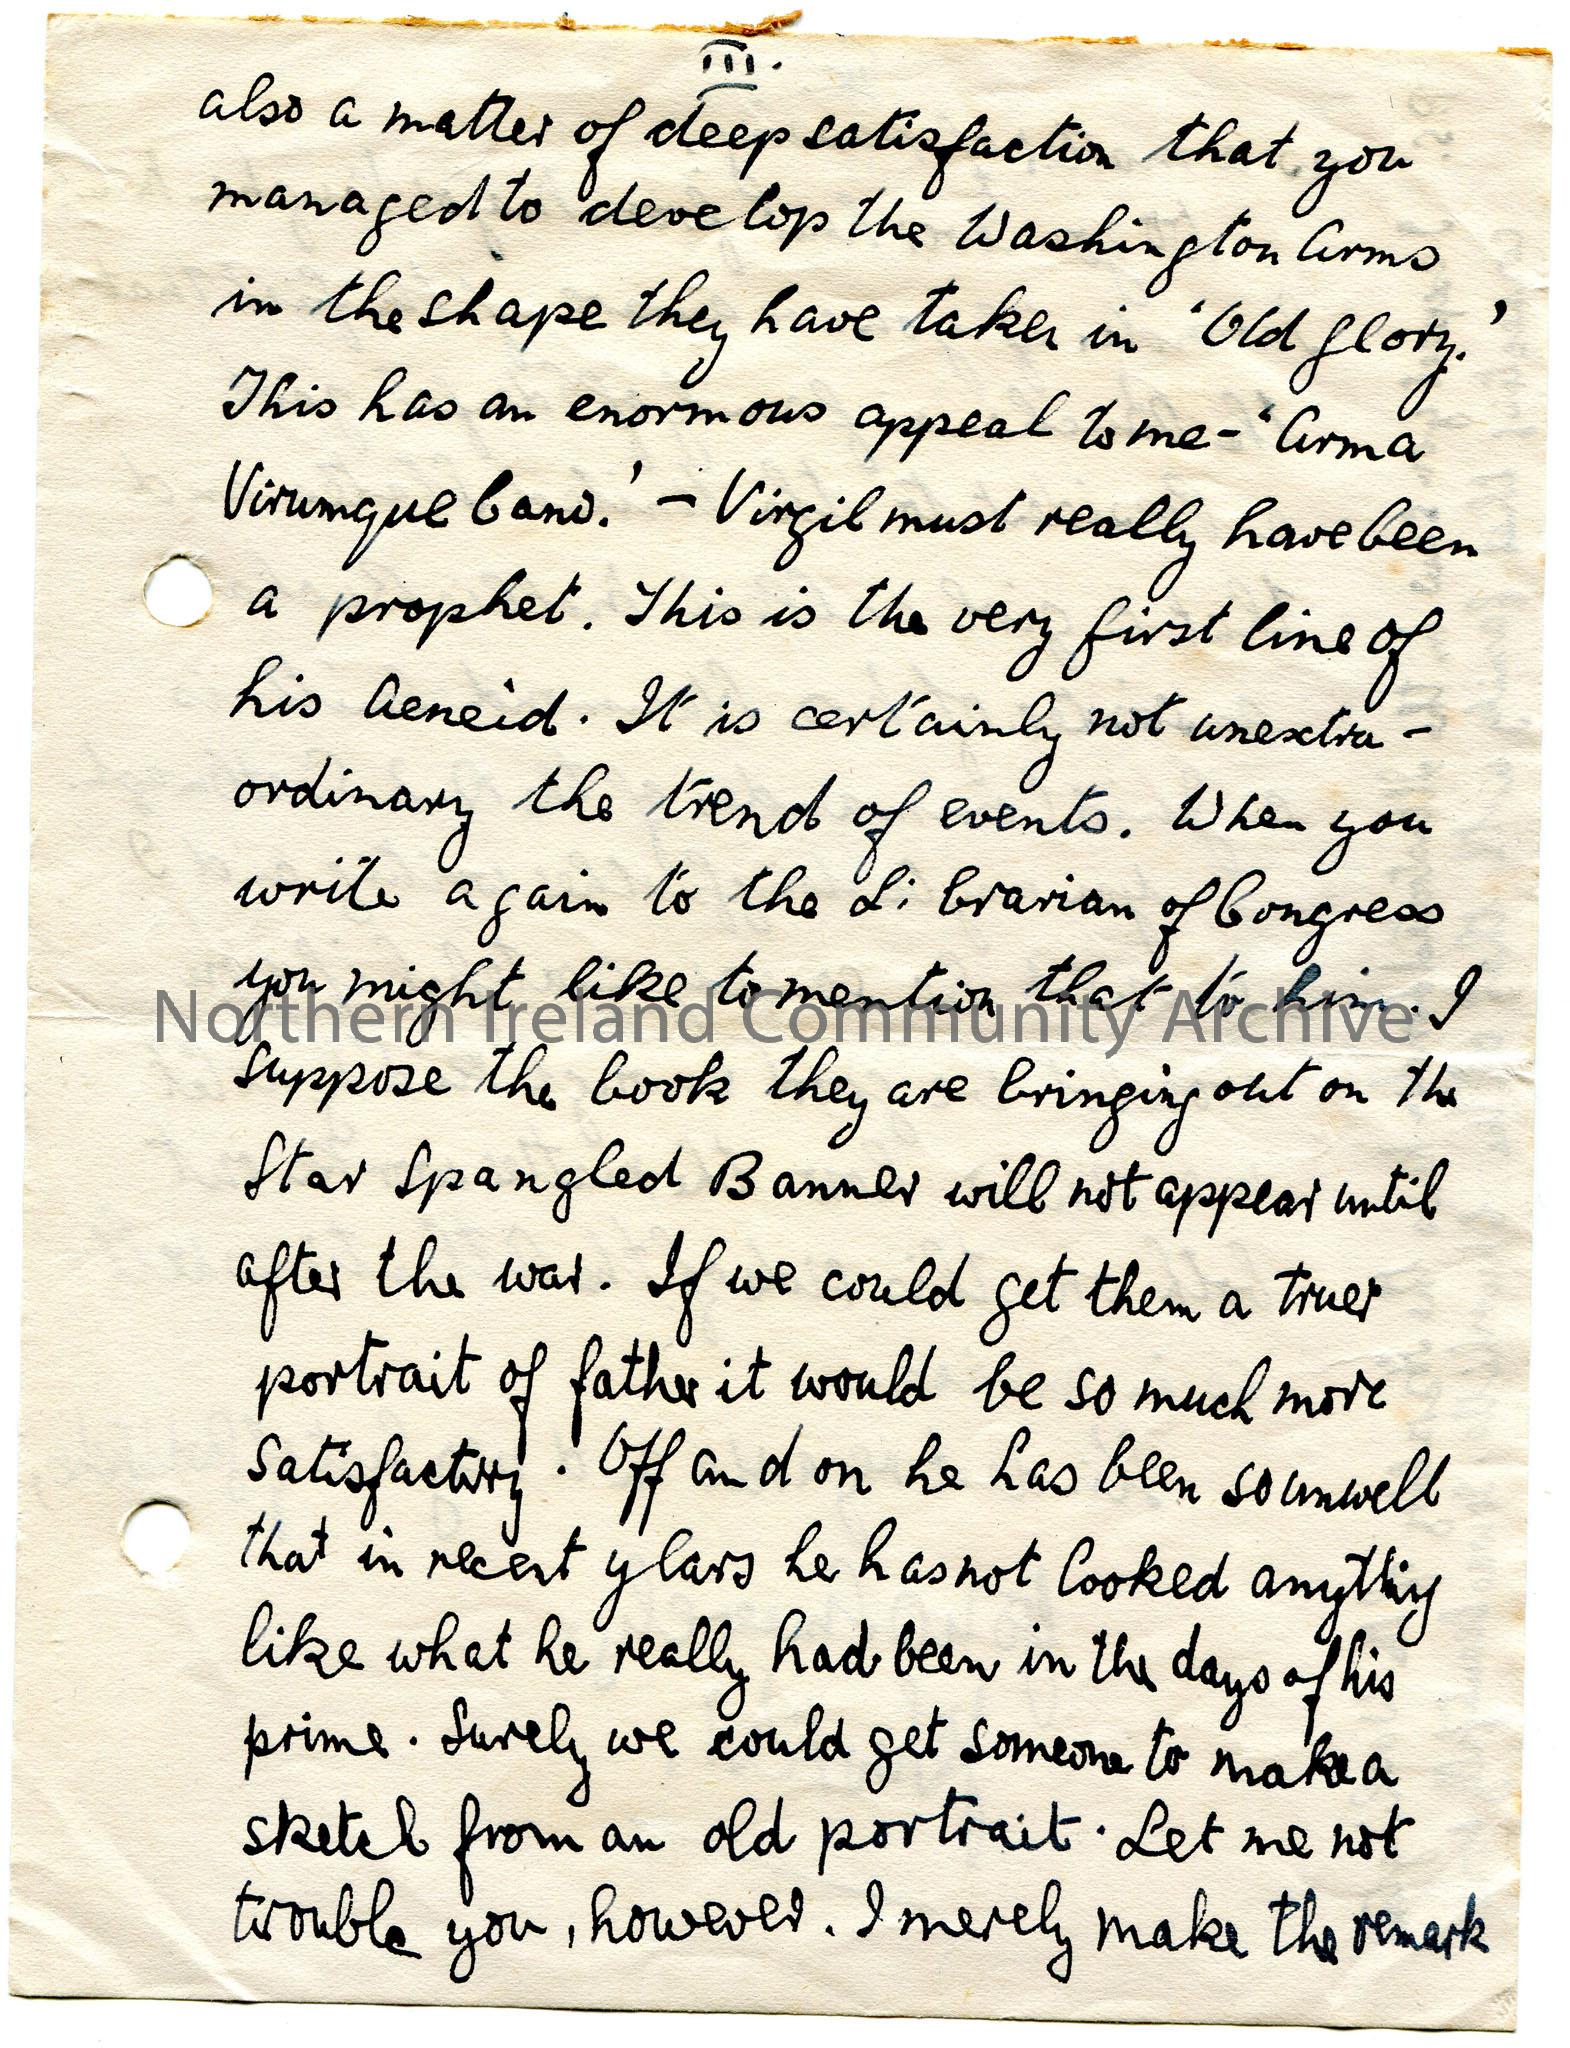 III.
also a matter of deep satisfaction that you
managed to develop the Washington Arms
in the shape they have taken in 'Old Glory.'
This has an enormous appeal to me - 'Arma
Virumque Cano.' - Virgil must really have been
a prophet. This is the very first line of
his Aeneid. It is certainly not unextra-
ordinary the trend of events. When you
write again to the Librarian of Congress
you might like to mention that to him. I
Northern Ireland Community Archive
suppose the book they are bringing out on the
Star Spangled Banner will not appear until
after the war. If we could get them a truer
portrait of father it would be so much more
satisfactory. Off and on he has been so unwell
that in recent years he has not looked anything
like what he really had been in the days of his
prime. Surely we could get someone to make a
sketch from an old portrait. Let me not
trouble you, however. I merely make the remark